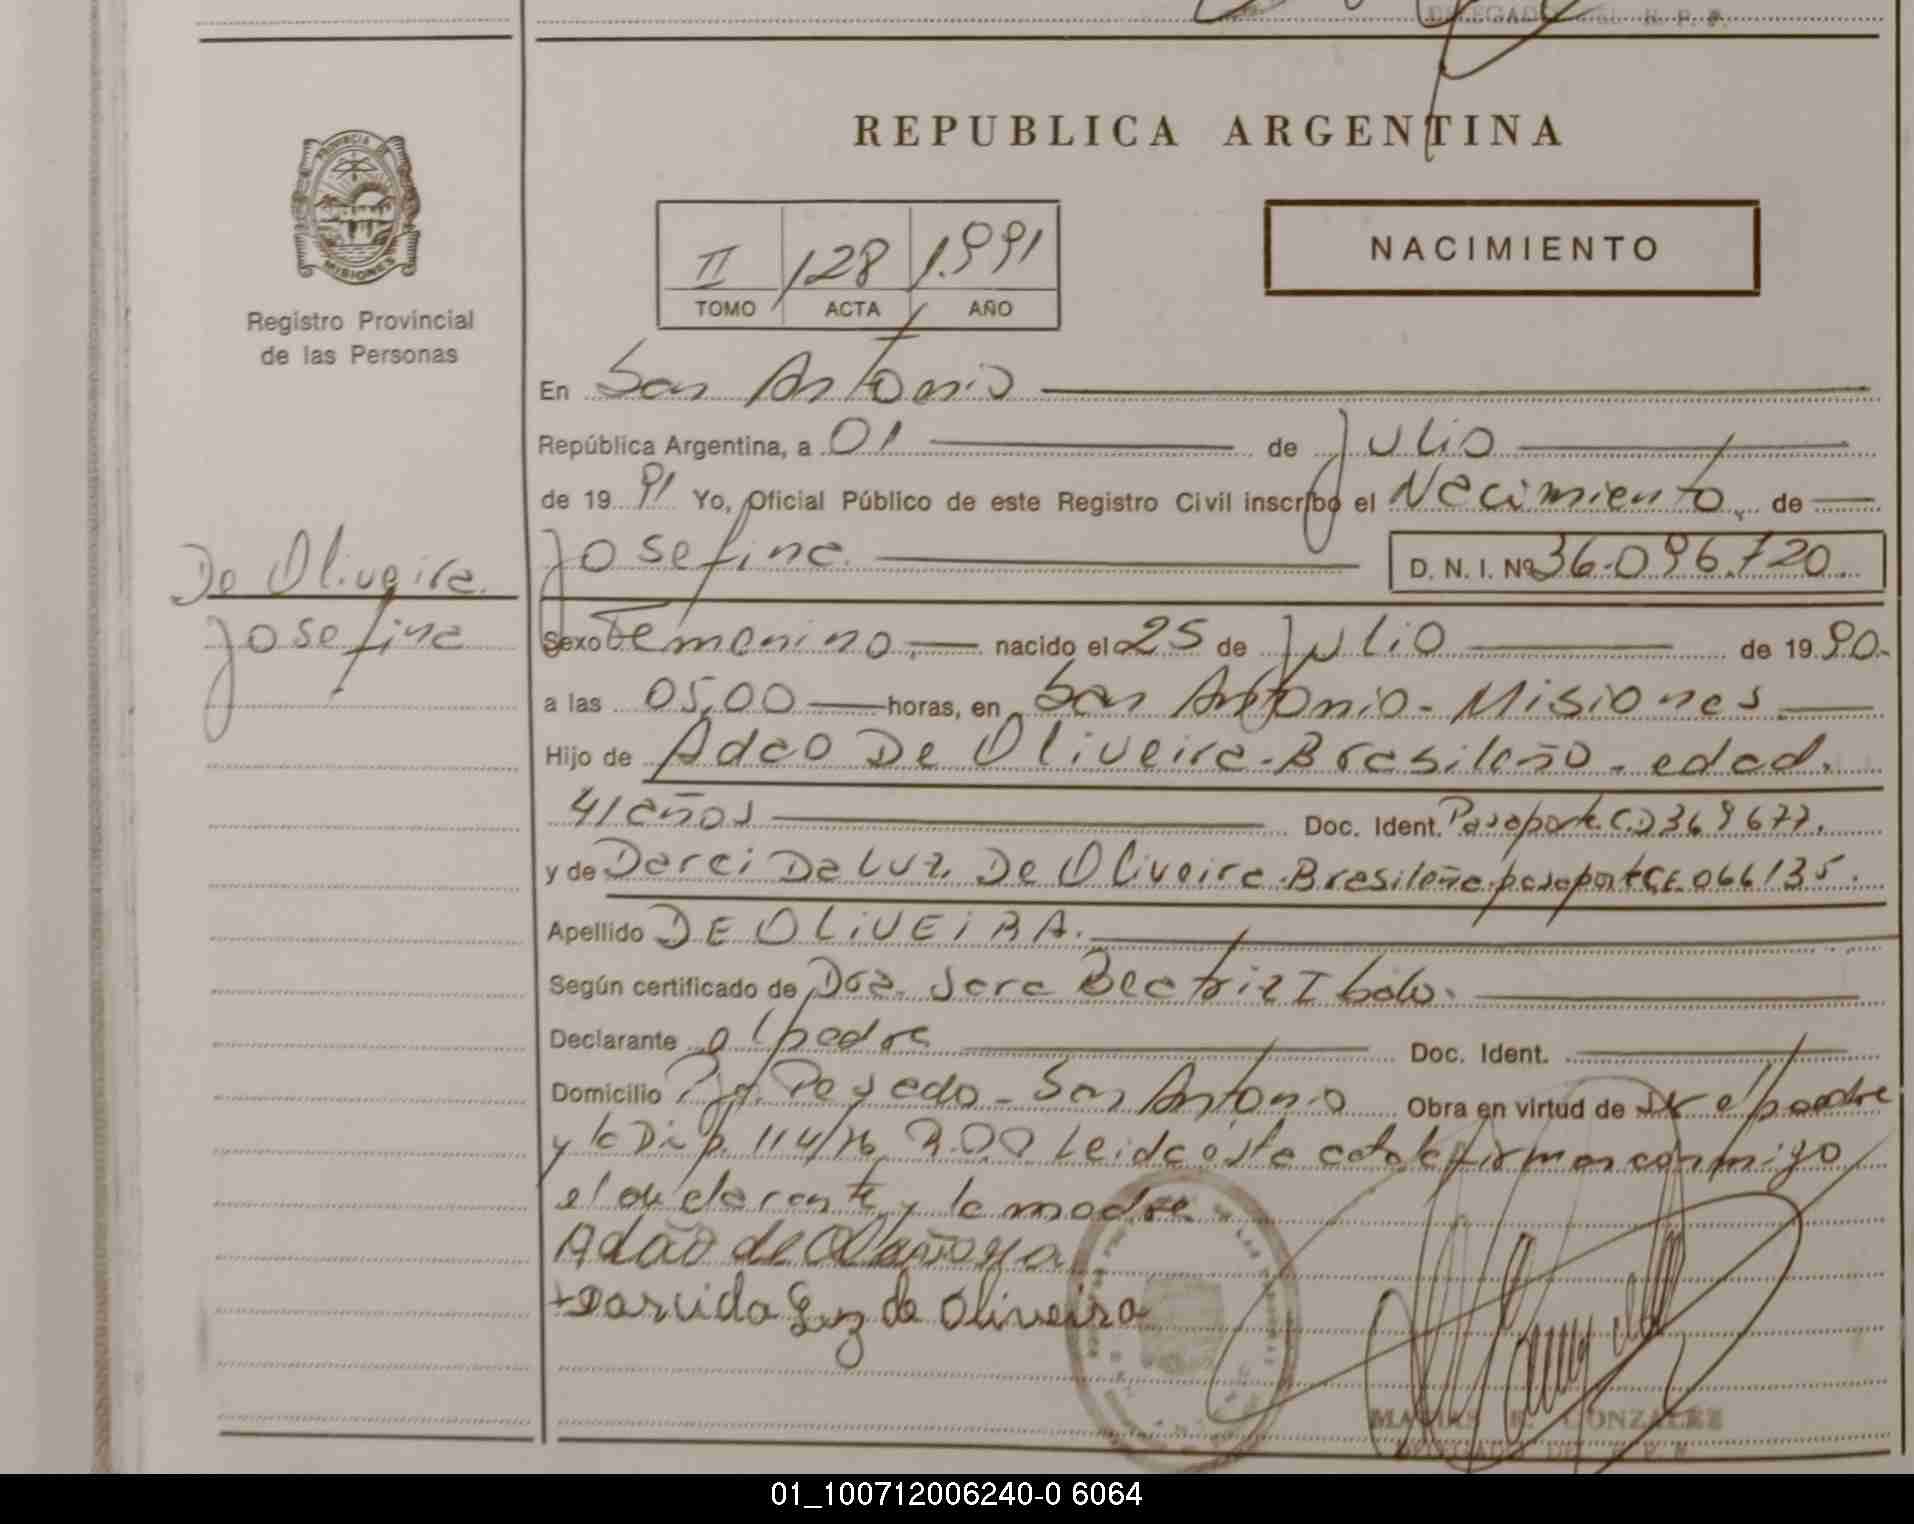 DELEGADO DEL R. P. P.
PROVINCIA DE
MISIONES
Registro Provincial
de las Personas
REPUBLICA ARGENTINA
II 128 1.991
TOMO ACTA AÑO
NACIMIENTO
En San Antonio
República Argentina, a 01 de Julio
de 19 91 Yo, Oficial Público de este Registro Civil inscribo el Nacimiento, de
De Oliveira.
Josefina
Josefina. D. N. I. Nº 36.096.720.
Sexo Femenino. nacido el 25 de Julio de 19 90.
a las 05,00 horas, en San Antonio - Misiones
Hijo de Adao De Oliveira - Brasileño - edad.
41 años Doc. Ident. Pasaporte C.D 369677.
y de Darci Da Luz De Oliveira - Brasileña pasaporte CE 066135.
Apellido DE OLIVEIRA.
Según certificado de Dra. Sara Beatriz
Declarante el padre Doc. Ident.
Domicilio Pje. Peyedo - San Antonio Obra en virtud de el padre
y la Disp. 114/76 Leida esta acta la firman conmigo
el declarante y la madre
Adão de
Darci da Luz de Oliveira
MATIAS R. GONZALEZ
DELEGADO DEL R. P. P.
01_100712006240-0 6064